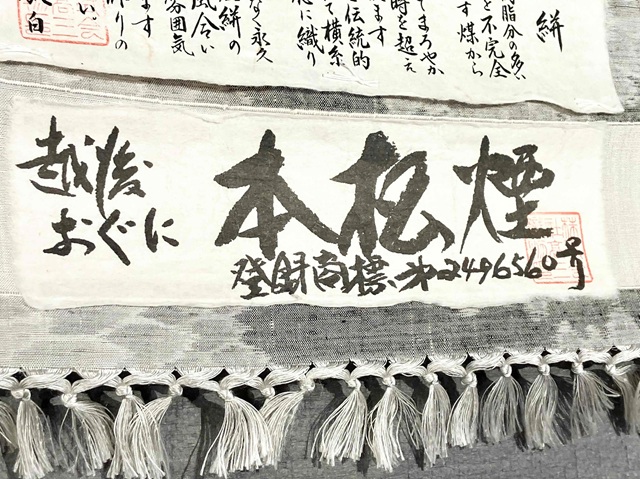 絣
脂分の多い
を不完全
す煤から
てまろやか
時を超え
ます
伝統的
て横糸
に織り
なく永久
絣の
風合い
雰囲気
ます
りの
い。
白
越後
おぐに
本松煙
登録商標 第2496560号